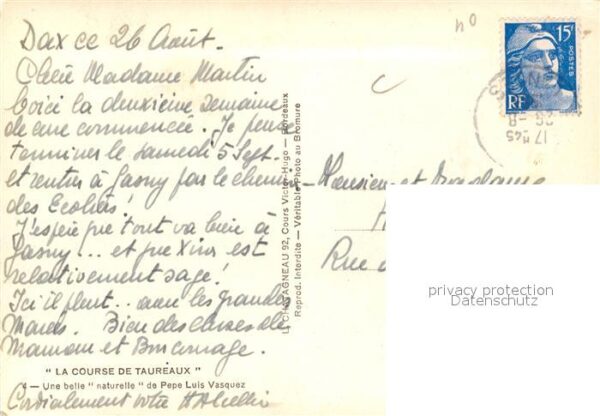 Dax ce 26 Août.
Chère Madame Martin
Voici la deuxième semaine
de cure commencée. Je pense
terminer le samedi 5 Sept.
et rentrer à Gasny par le chemin
des Ecoliers!
J'espère que tout va bien à
Gasny... et que est
relativement sage!
Ici il pleut.. avec les grandes
Marées. Bien des choses de
Maman et Bon courage.
Cordialement votre
" LA COURSE DE TAUREAUX "
4 — Une belle " naturelle " de Pepe Luis Vasquez
L. CHATAGNEAU 92, Cours Victor-Hugo — Bordeaux
Reprod. Interdite — Véritable Photo au Bromure
Monsieur et Madame
Rue
15F
POSTES
RF
17 H45
26 - 8
privacy protection
Datenschutz